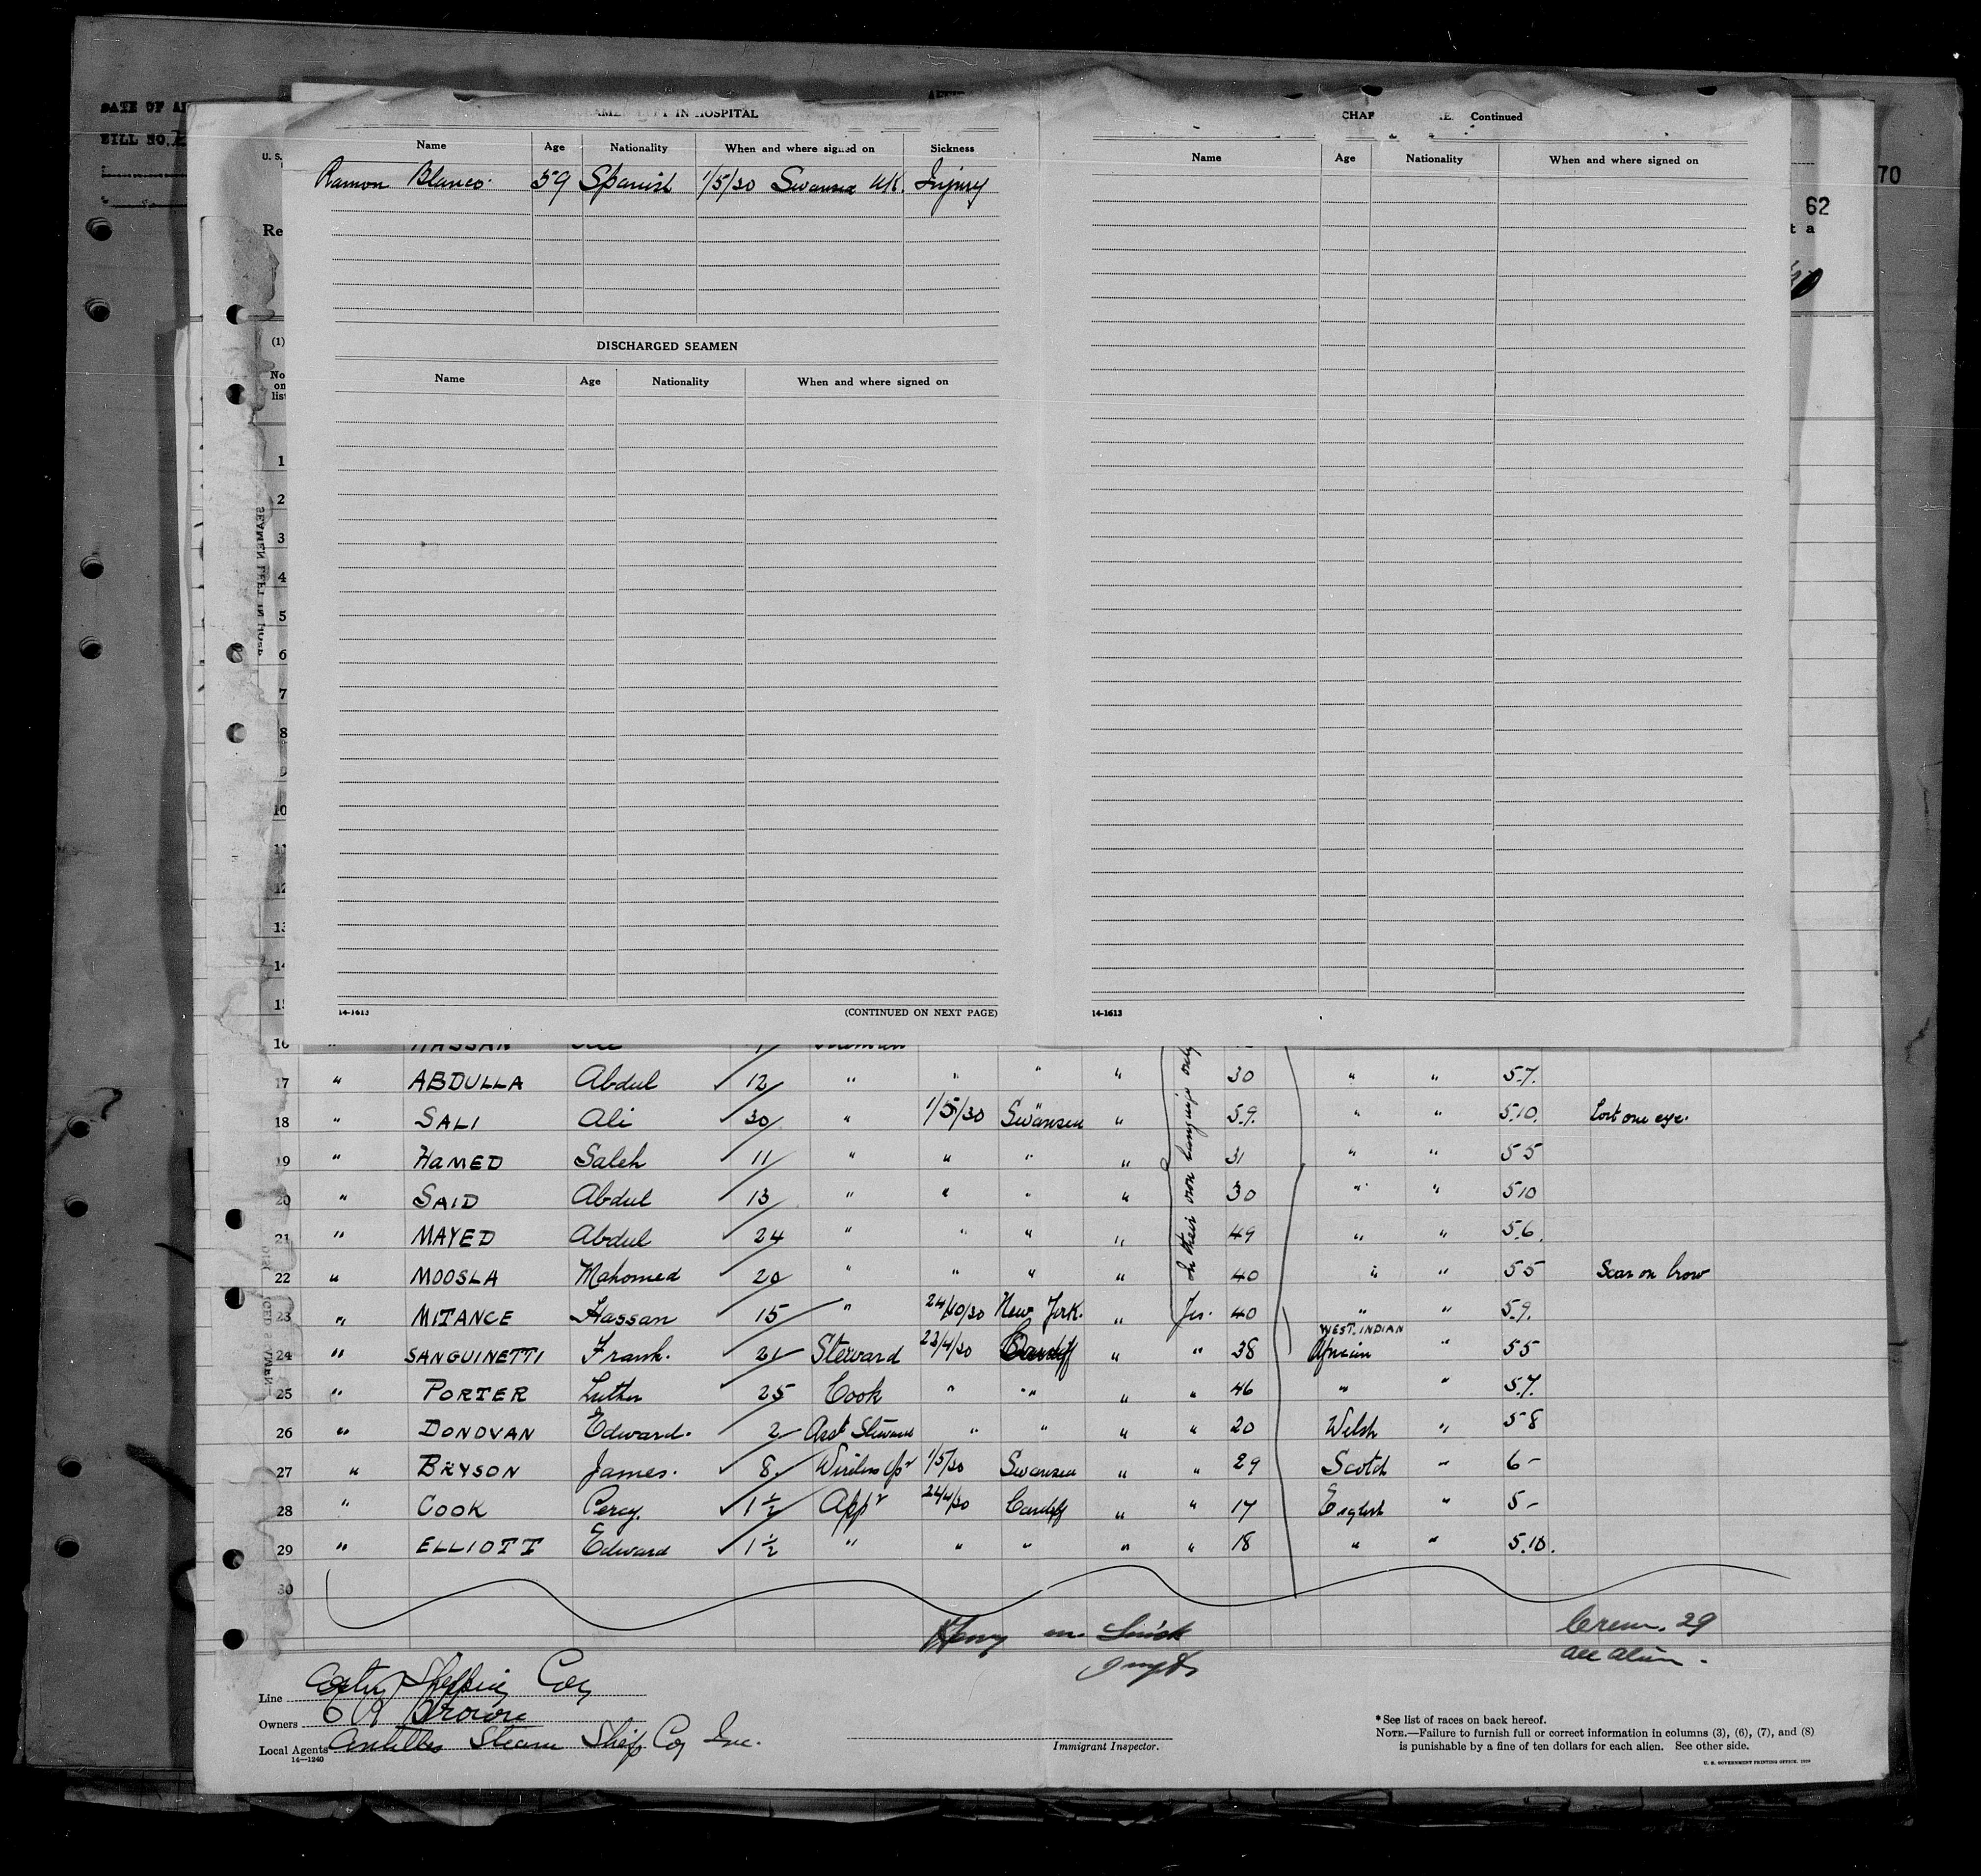 DATE OF
BILL NO.
70
62
t a
U. S.
Re
(1)
No
on
list
IN HOSPITAL
Name Age Nationality When and where signed on Sickness
Ramon Blanco. 59 Spanish 1/5/30 Swansea UK. Injury
DISCHARGED SEAMEN
Name Age Nationality When and where signed on
14-1613 (CONTINUED ON NEXT PAGE)
Continued
Name Age Nationality When and where signed on
14-1613
SEAMEN LEFT IN HOSP
1
2
3
4
5
6
7
8
9
10
11
12
13
14
15
16 " HASSAN
on their own belongings only
17 " ABDULLA Abdul ✓ 12 " " " " 30 " " 5.7.
18 " SALI Ali ✓ 30 " 1/5/30 Swansea " 59. " " 5.10. Lost one eye.
19 " HAMED Saleh ✓ 11 " " " " 31 " " 5 5
20 " SAID Abdul ✓ 13 " " " " 30 " " 5 10
21 " MAYED Abdul ✓ 24 " " " " 49 " " 5.6.
22 " MOOSLA Mahomed ✓ 20 " " " " 40 " " 5 5 Scar on brow
23 " MITANCE Hassan ✓ 15 " 24/10/30 New York. " Yes. 40 " " 5.9.
24 " SANGUINETTI Frank. 21 Steward 23/4/30 Cardiff " " 38 WEST. INDIAN African " 5 5
25 " PORTER Luther 25 Cook " " " " 46 " " 5.7.
26 " DONOVAN Edward. 2 Asst Steward " " " " 20 Welsh " 5 8
27 " BRYSON James. ✓ 8. Wireless Opr 1/5/30 Swansea " " 29 Scotch " 6 -
28 " COOK Percy. ✓ 1½ Appr 24/4/30 Cardiff " " 17 English " 5 -
29 " ELLIOTT Edward ✓ 1½ " " " " " 18 " " 5.10.
30
Crew. 29
all alien.
Line Shipping Coy
Owners Brown
Local Agents Antilles Steam Ship Coy Inc.
14-1240
Immigrant Inspector.
* See list of races on back hereof.
NOTE.—Failure to furnish full or correct information in columns (3), (6), (7), and (8)
is punishable by a fine of ten dollars for each alien. See other side.
U. S. GOVERNMENT PRINTING OFFICE